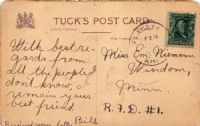 TUCK'S POST CARD
With best re-
gards from
all the people I
don't know, I
remain your
best friend
Bill
Miss Em. Niemann
Windom,
Minn.
R.F.D. #1.